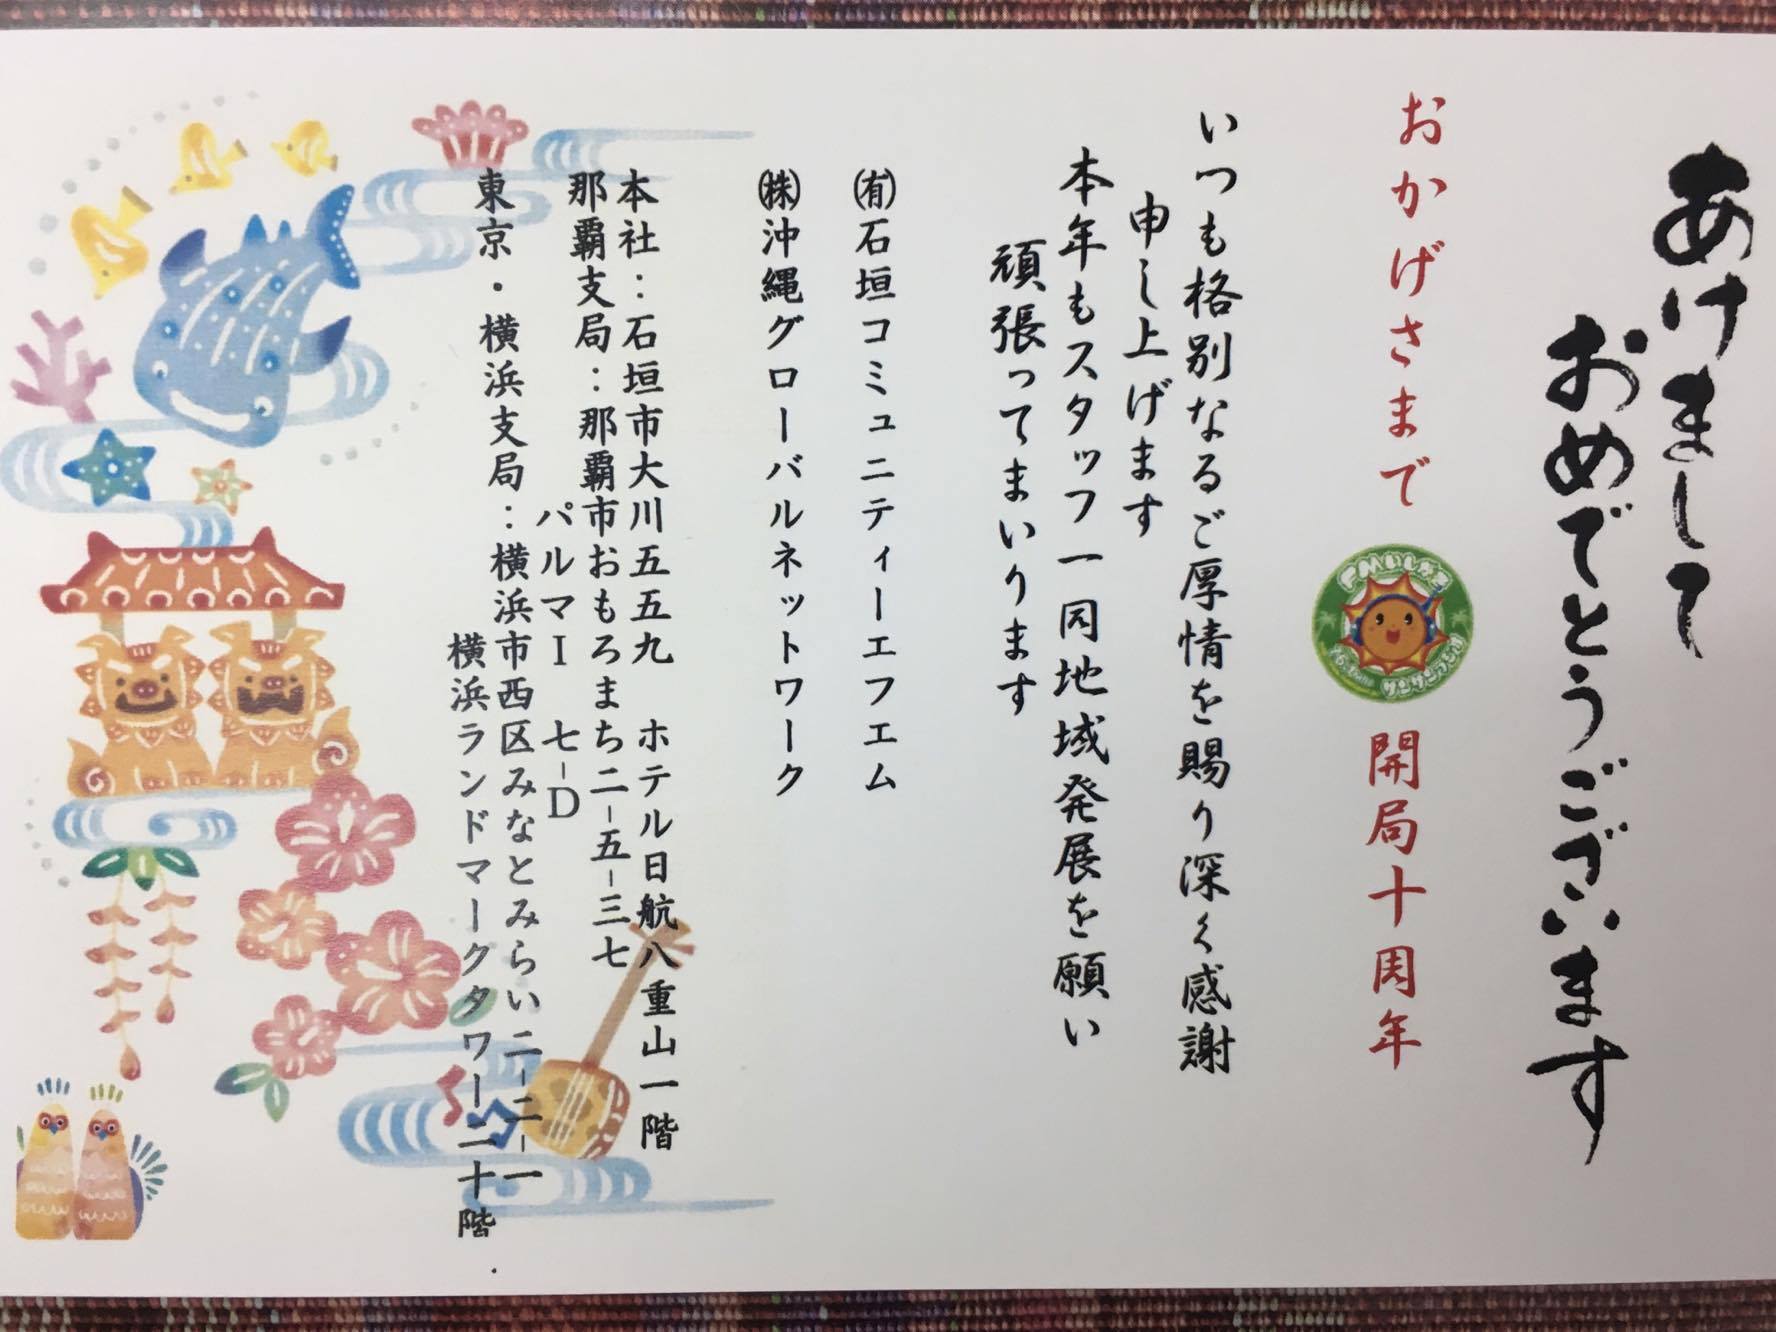 あけまして
おめでとうございます
おかげさまで
FMいしがき
サンサンラジオ
開局十周年
いつも格別なるご厚情を賜り深く感謝
申し上げます
本年もスタッフ一同地域発展を願い
頑張ってまいります
㈲石垣コミュニティーエフエム
㈱沖縄グローバルネットワーク
本社：石垣市大川五五九 ホテル日航八重山一階
那覇支局：那覇市おもろまち二-五-三七
パルマⅠ 七-D
東京・横浜支局：横浜市西区みなとみらい二-二-一
横浜ランドマークタワー二十階